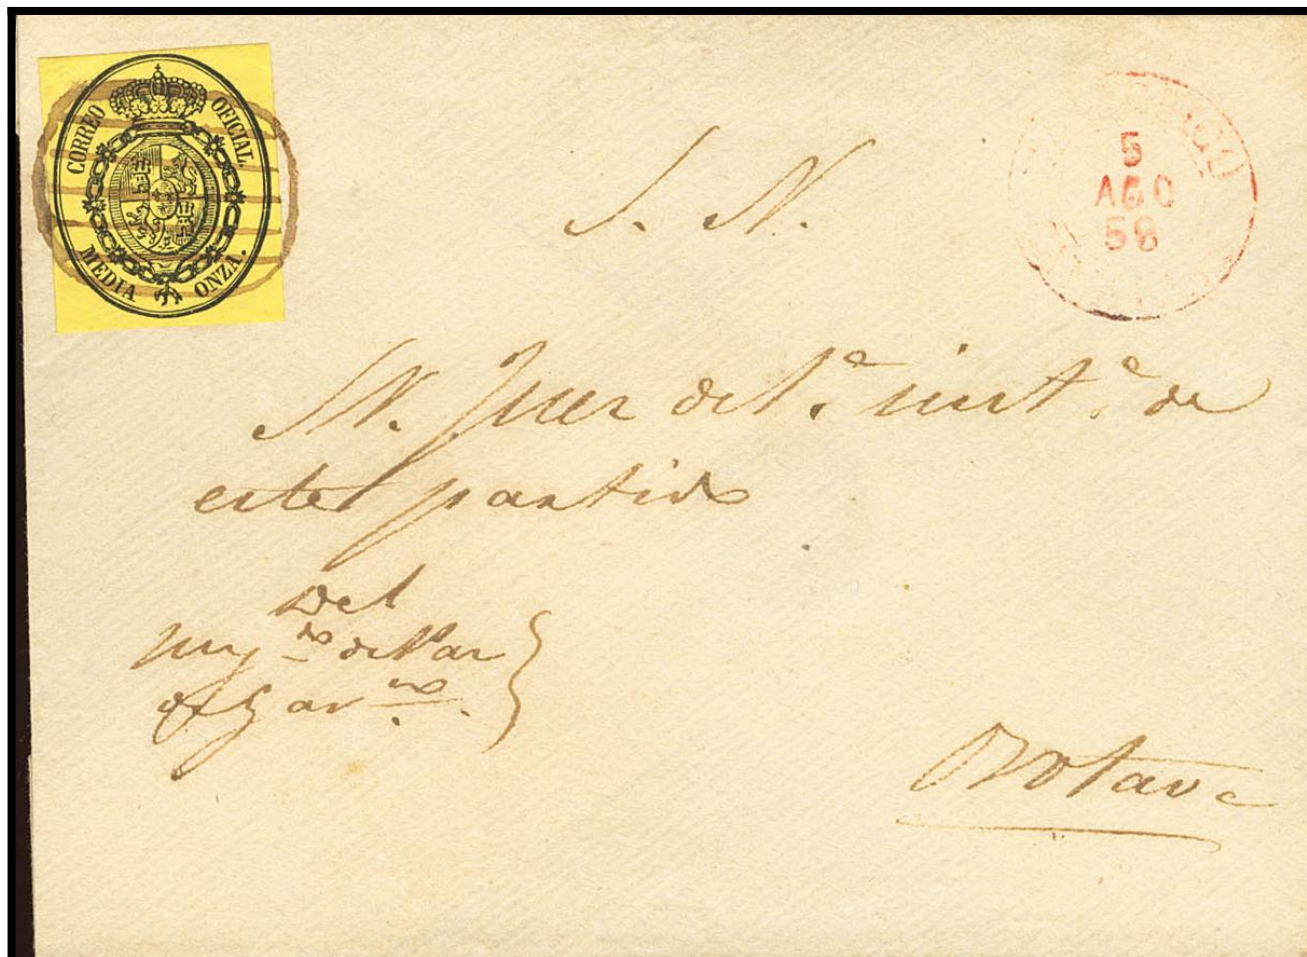 CORREO OFICIAL.
MEDIA ONZA.
5
AGO
58
S. N.
Sr. Juez de 1.ª inst.ª de
este partido
Del
Juzg.do de Par
Orotava